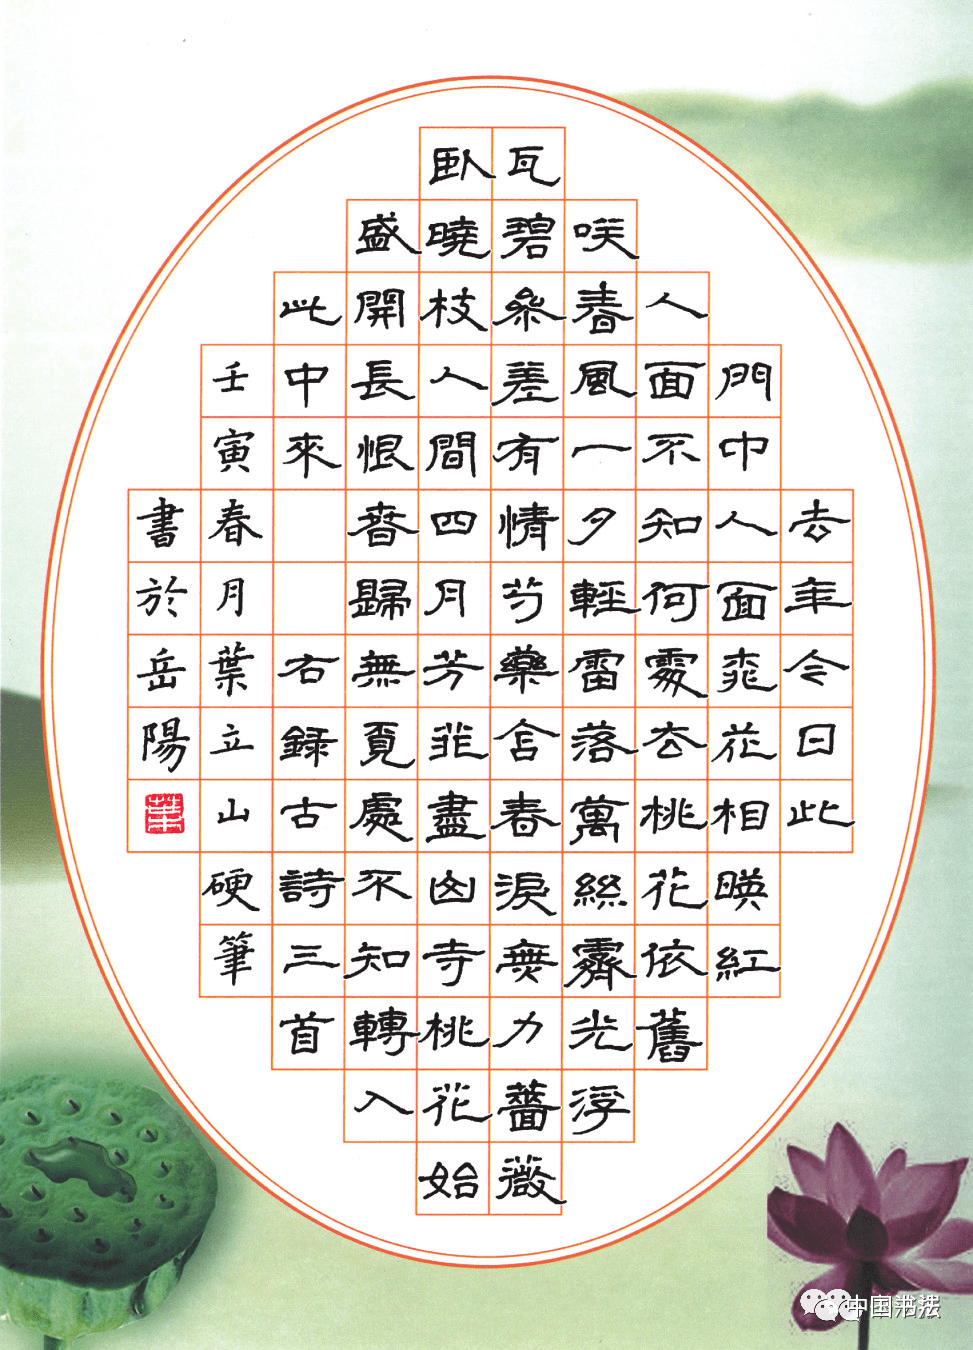 去年今日此
門中人面桃花相暎紅
人面不知何處去桃花依舊
咲春風一夕輕雷落萬絲霽光浮
瓦碧參差有情芍藥含春淚無力薔薇
臥曉枝人間四月芳菲盡山寺桃花始
盛開長恨春歸無覓處不知轉入
此中來 右録古詩三首
壬寅春月葉立山硬筆
書於岳陽
葉
中国书法